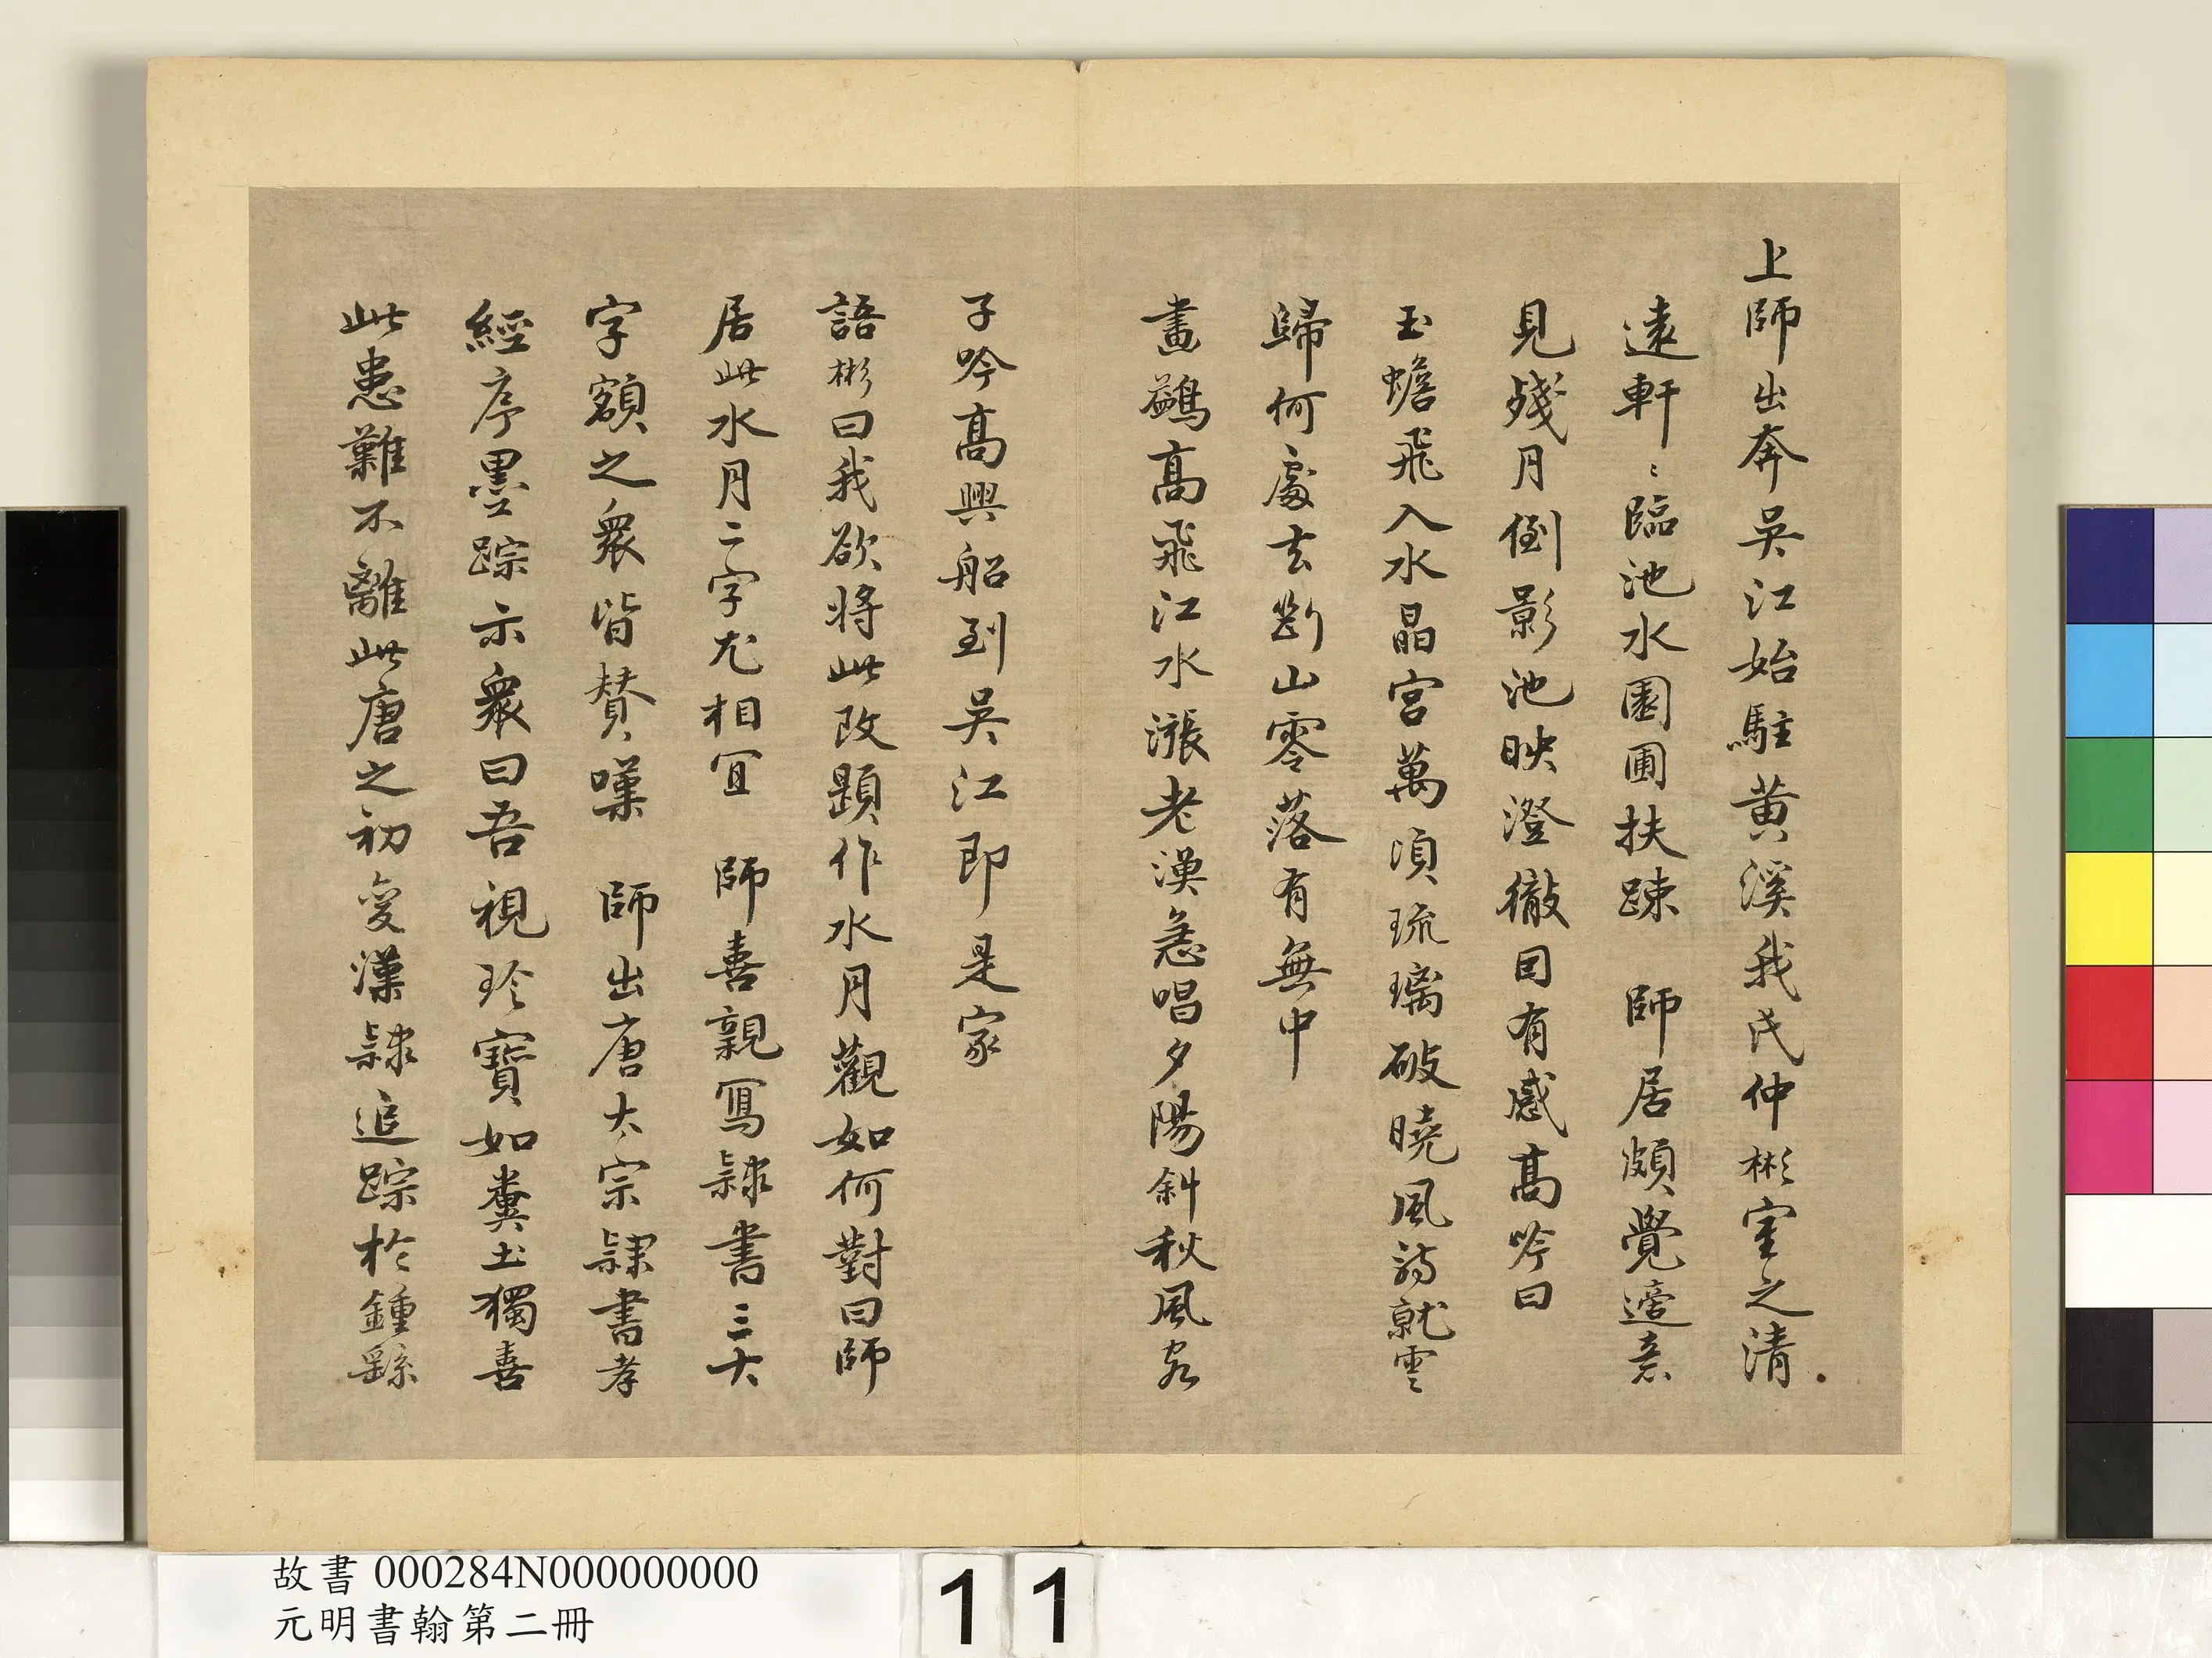 上師出奔吳江始駐黃溪我氏仲彬室之清
遠軒〻臨池水園圃扶踈　師居頗覺適意
見殘月倒影池映澄徹因有感高吟曰
玉蟾飛入水晶宮萬頃琉璃破曉風詩就雲
歸何處去斷山零落有無中
畫鷁高飛江水漲老漁急唱夕陽斜秋風客
子吟高興船到吳江即是家
語彬曰我欲將此改題作水月觀如何對曰師
居此水月二字尤相宜　師喜親寫隸書三大
字額之眾皆賛嘆　師出唐太宗隸書孝
經序墨踪示眾曰吾視珍寶如糞土獨喜
此患難不離此唐之初變漢隸追踪於鍾繇
故書 000284N000000000
元明書翰第二冊
11